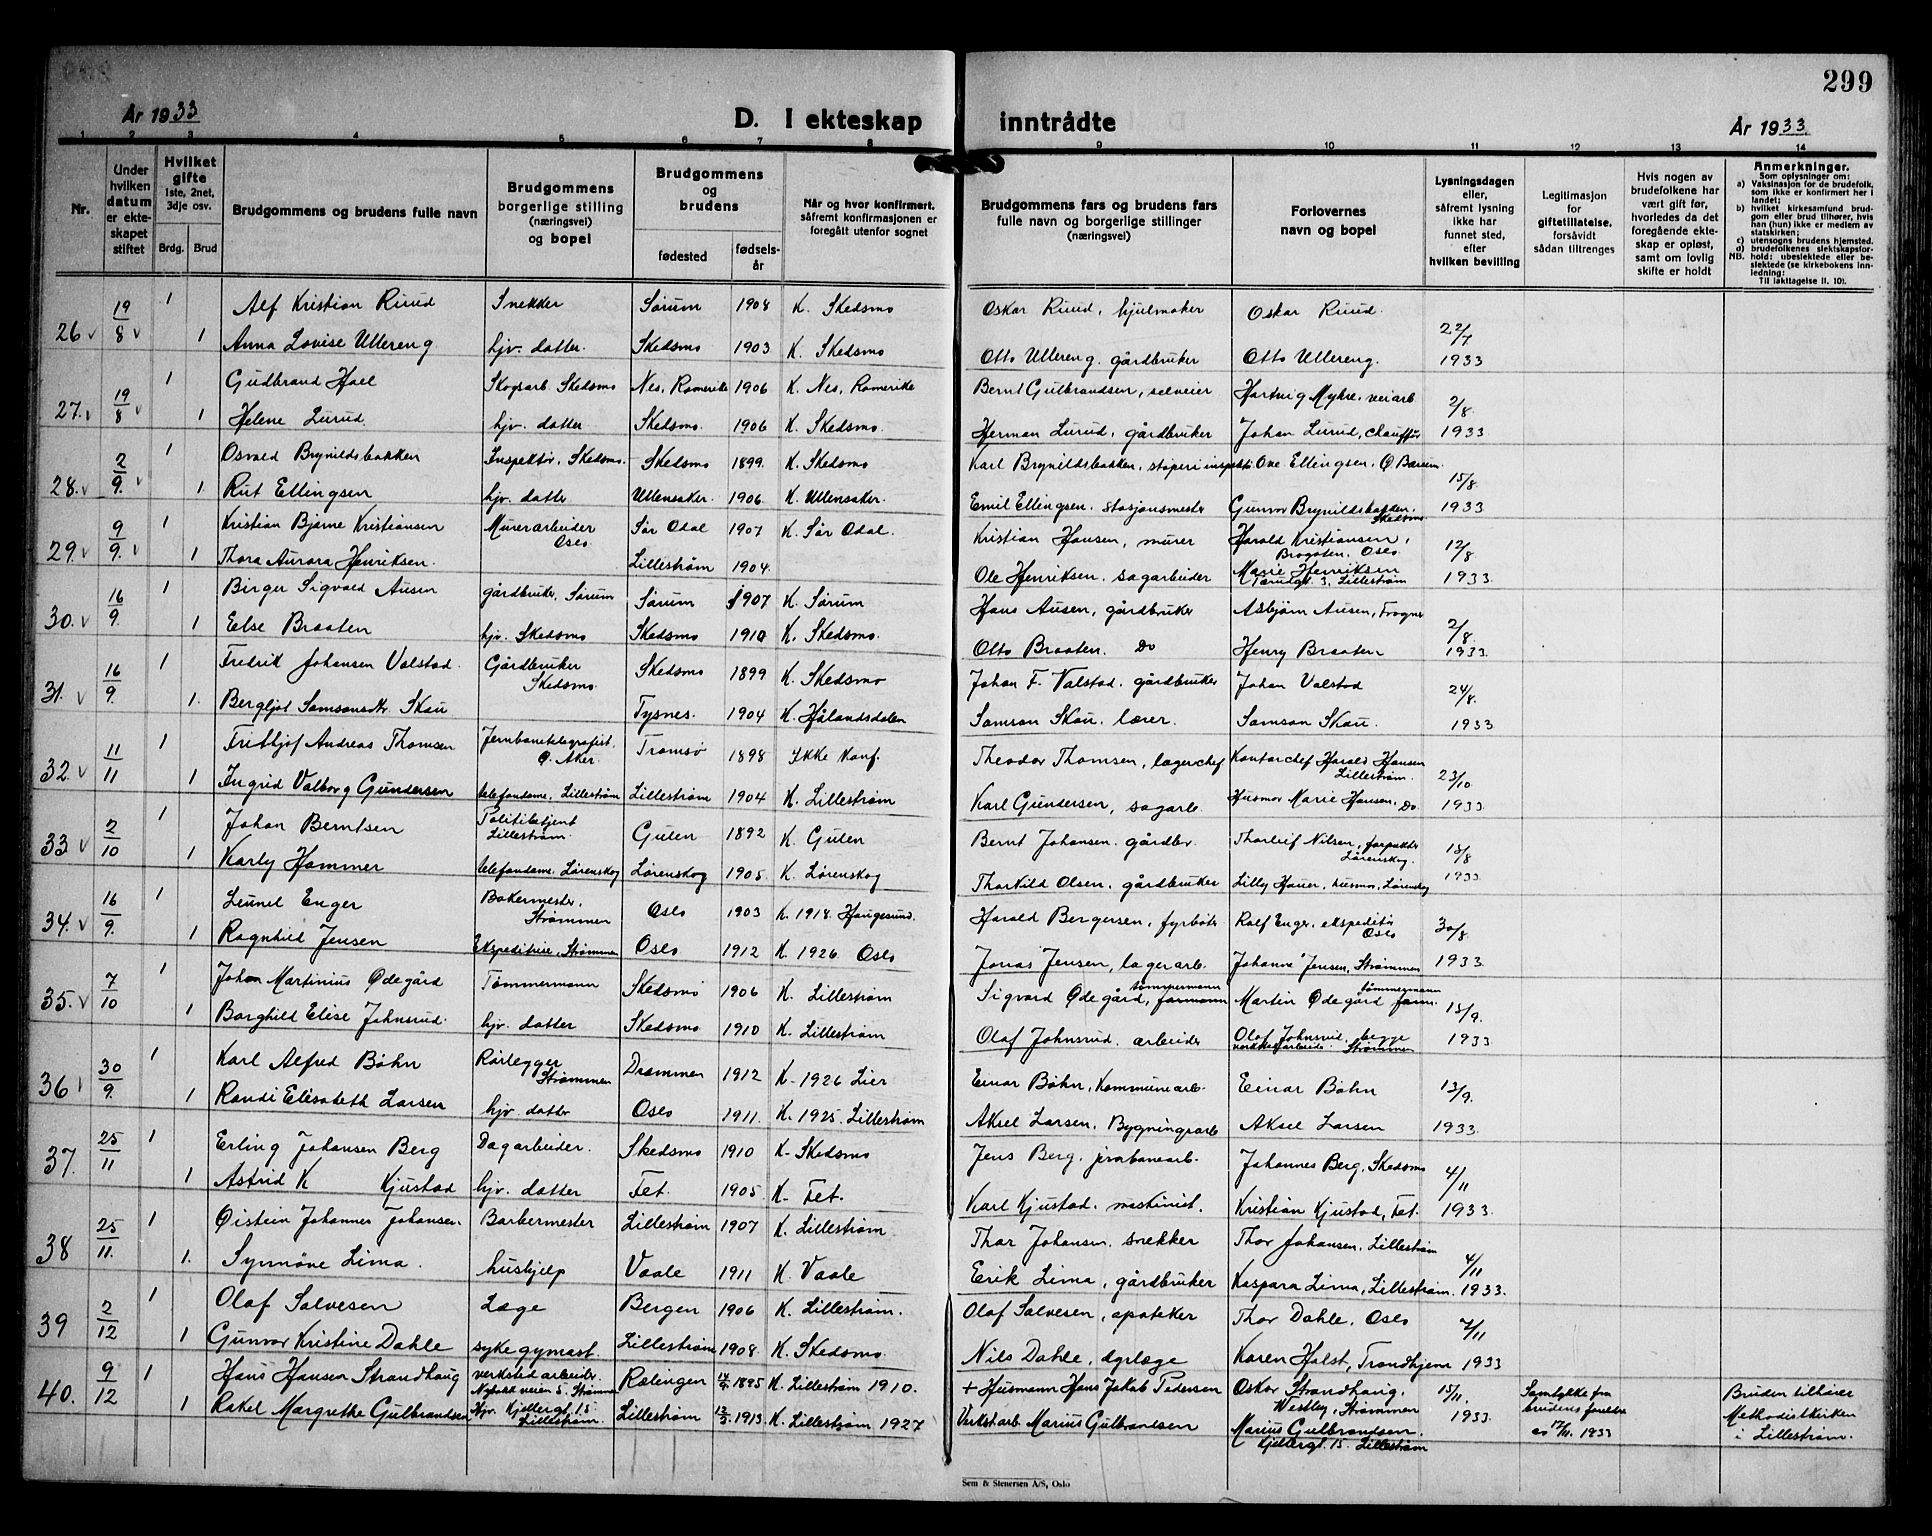 299
År 1933
D. I ekteskap inntrådte
År 1933
1 2 3 4 5 6 7 8 9 10 11 12 13 14
Nr.
Under hvilken datum er ekteskapet stiftet
Hvilket gifte 1ste, 2net, 3dje osv.
Brdg. Brud
Brudgommens og brudens fulle navn
Brudgommens borgerlige stilling (næringsvei) og bopel
Brudgommens og brudens
fødested
fødselsår
Når og hvor konfirmert, såfremt konfirmasjonen er foregått utenfor sognet
Brudgommens fars og brudens fars fulle navn og borgerlige stillinger (næringsvei)
Forlovernes navn og bopel
Lysningsdagen eller, såfremt lysning ikke har funnet sted, efter hvilken bevilling
Legitimasjon for giftetillatelse, forsåvidt sådan tiltrenges
Hvis nogen av brudefolkene har vært gift før, hvorledes da det foregående ekteskap er opløst, samt om lovlig skifte er holdt
Anmerkninger.
Som oplysninger om:
a) Vaksinasjon for de brudefolk, som ikke er konfirmert her i landet;
b) hvilket kirkesamfund brudgom eller brud tilhører, hvis han (hun) ikke er medlem av statskirken;
c) utensogns brudens hjemsted.
d) brudefolkenes slektskapsforhold: ubeslektede eller beslektede (se kirkebokens innledning:
NB. Til iakttagelse II. 10).
26 19/8 1 Alf Kristian Ruud Snekker Sørum 1908 K. Skedsmo Oskar Ruud, hjulmaker Oskar Ruud. 22/7 1933
1 Anna Lovise Ullereng hjv. datter. Skedsmo 1903 K. Skedsmo Otto Ullereng, gårdbruker Otto Ullereng.
27. 19/8 1 Gudbrand Hoel Skogsarb. Skedsmo Nes, Romerike 1906 K. Nes, Romerike Bernt Gulbrandsen, selveier Hartvig Myhre, veiarb 2/8. 1933
1 Helene Lurud. hjv. datter Skedsmo. 1906 K. Skedsmo. Herman Lurud, gårdbruker Johan Lurud, chauffør
28. 2/9. 1 Osvald Brynildsbakken Inspektør, Skedsmo. Skedsmo 1899. K. Skedsmo Karl Brynildsbakken, støperiinspekt. Ove Ellingsen, Ø Bærum. 15/8. 1933
1. Rut Ellingsen hjv. datter Ullensaker. 1906. K. Ullensaker. Emil Ellingsen. stasjonsmester Gunvor Brynildsbakken. Skedsmo
29. 9/9. 1 Kristian Bjarne Kristiansen Murerarbeider Oslo. Sør Odal 1907 K. Sør Odal. Kristian Hansen, murer Harald Kristiansen, Oslo 12/8 1933
1 Thora Aurora Henriksen. Lillestrøm 1904. Ole Henriksen. sagarbeider Marie Henriksen 3, Lillestrøm
30. 16/9. 1 Birger Sigvald Ausen gårdbruker, Sørum Sørum 1907 K. Sørum Hans Ausen, gårdbruker Asbjørn Ausen, Frogner 2/8. 1933.
1 Else Braaten hjv. Skedsmo Skedsmo 1910 K. Skedsmo. Otto Braaten. Do Henry Braaten
31. 16/9. 1 Fredrik Johansen Valstad. Gårdbruker Skedsmo. Skedsmo 1899 K. Skedsmo Johan F. Valstad. gårdbruker Johan Valstad 24/8. 1933
1. Bergljot Samsonsdtr. Skau Tysnes. 1904 K. Hålandsdalen Samson Skau. lærer. Samson Skau.
32. 11/11 1 Fritthjof Andreas Thomsen Jernbanetelegrafist. Ø. Aker. Tromsø 1898 Ikke konf. Theodor Thomsen, lagerchef Kontorchef Harald Hansen Lillestrøm. 23/10 1933.
1 Ingrid Valborg Gundersen telefondame, Lillestrøm Lillestrøm 1904 K. Lillestrøm Karl Gundersen, sagarb. Husmor Marie Hansen. Do.
33 2/10 1 Johan Berntsen Politibetjent Lillestrøm. Gulen 1892 K. Gulen Bernt Johansen. gårdbr. Thorleif Nilsen, forpakter Lørenskog. 15/8 1933
1 Karly Hammer telefondame. Lørenskog Lørenskog 1905 K. Lørenskog Thorkild Olsen, gårdbruker Lilly Hauer, husmor, Lørenskog
34. 16/9. 1 Leunel Enger Bakermester, Strømmen Oslo 1903 K. 1918. Haugesund. Harald Bergersen, fyrbøter Rolf Enger, ekspeditør Oslo 30/8. 1933.
1 Ragnhild Jensen Ekspeditrise, Strømmen Oslo 1912 K. 1926 Oslo Jonas Jensen, lagerarb. Johanne Jensen, Strømmen
35. 7/10 1 Johan Martinius Ødegård Tømmermann Skedsmo 1906 K. Lillestrøm Sigvard Ødegård, formann tømmermann Martin Ødegård form. tømmermann 15/9. 1933
1 Borghild Elise Johnsrud. hjv. datter Skedsmo 1910 K. Lillestrøm Olaf Johnsrud. arbeider Olaf Johnsrud, begge Strømmen
36 30/9. 1 Karl Alfred Bøhn Rørlegger Strømmen Drammen 1912 K. 1926 Lier Einar Bøhn, Kommunearb. Einar Bøhn 13/9. 1933.
1 Randi Elisabeth Larsen hjv. datter Oslo 1911. K. 1925. Lillestrøm Aksel Larsen. Bygningsarb Aksel Larsen
37. 25/11 1 Erling Johansen Berg Dagarbeider. Skedsmo 1910 K. Skedsmo Jens Berg. jernbanearb. Johannes Berg, Skedsmo 4/11 1933.
1 Astrid K Kjustad hjv. datter Fet. 1905. K. Fet. Karl Kjustad. maskinist. Kristian Kjustad, Fet.
38 25/11. 1 Øistein Johannes Johansen. Barbermester Lillestrøm 1907 K. Lillestrøm Thor Johansen. snekker Thor Johansen. Lillestrøm 4/11 1933.
1. Synnøve Lima. hushjelp Vaale 1911 K. Vaale Erik Lima, gårdbruker Kaspara Lima, Lillestrøm.
39 2/12 1 Olaf Salvesen Læge Bergen 1906 K. Lillestrøm. Olaf Salvesen, apoteker Thor Dahle, Oslo 7/11 1933
1 Gunvor Kristine Dahle sykegymast. Lillestrøm 1908. K. Skedsmo. Nils Dahle, dyrlæge Karen Holst, Trondhjem
40. 9/12 1 Hans Hansen Strandhaug verkstedarbeider. 5. Strømmen Rælingen 1895 K. Lillestrøm 1910. + Husmann Hans Jakob Pedersen Oskar Strandhaug, Westby, Strømmen 15/11. 1933. Samtykke fra brudens foreldre av 17/11. 1933 Bruden tilhører Methodistkirken i Lillestrøm.
1 Rakel Margrethe Gulbrandsen Hjv. Kjellergt. 15 Lillestrøm. Lillestrøm 1913. K. Lillestrøm 1927 Verkst.arb Marius Gulbrandsen Marius Gulbrandsen. Kjellergt. 15 Lillestrøm
Sem & Stenersen A/S, Oslo